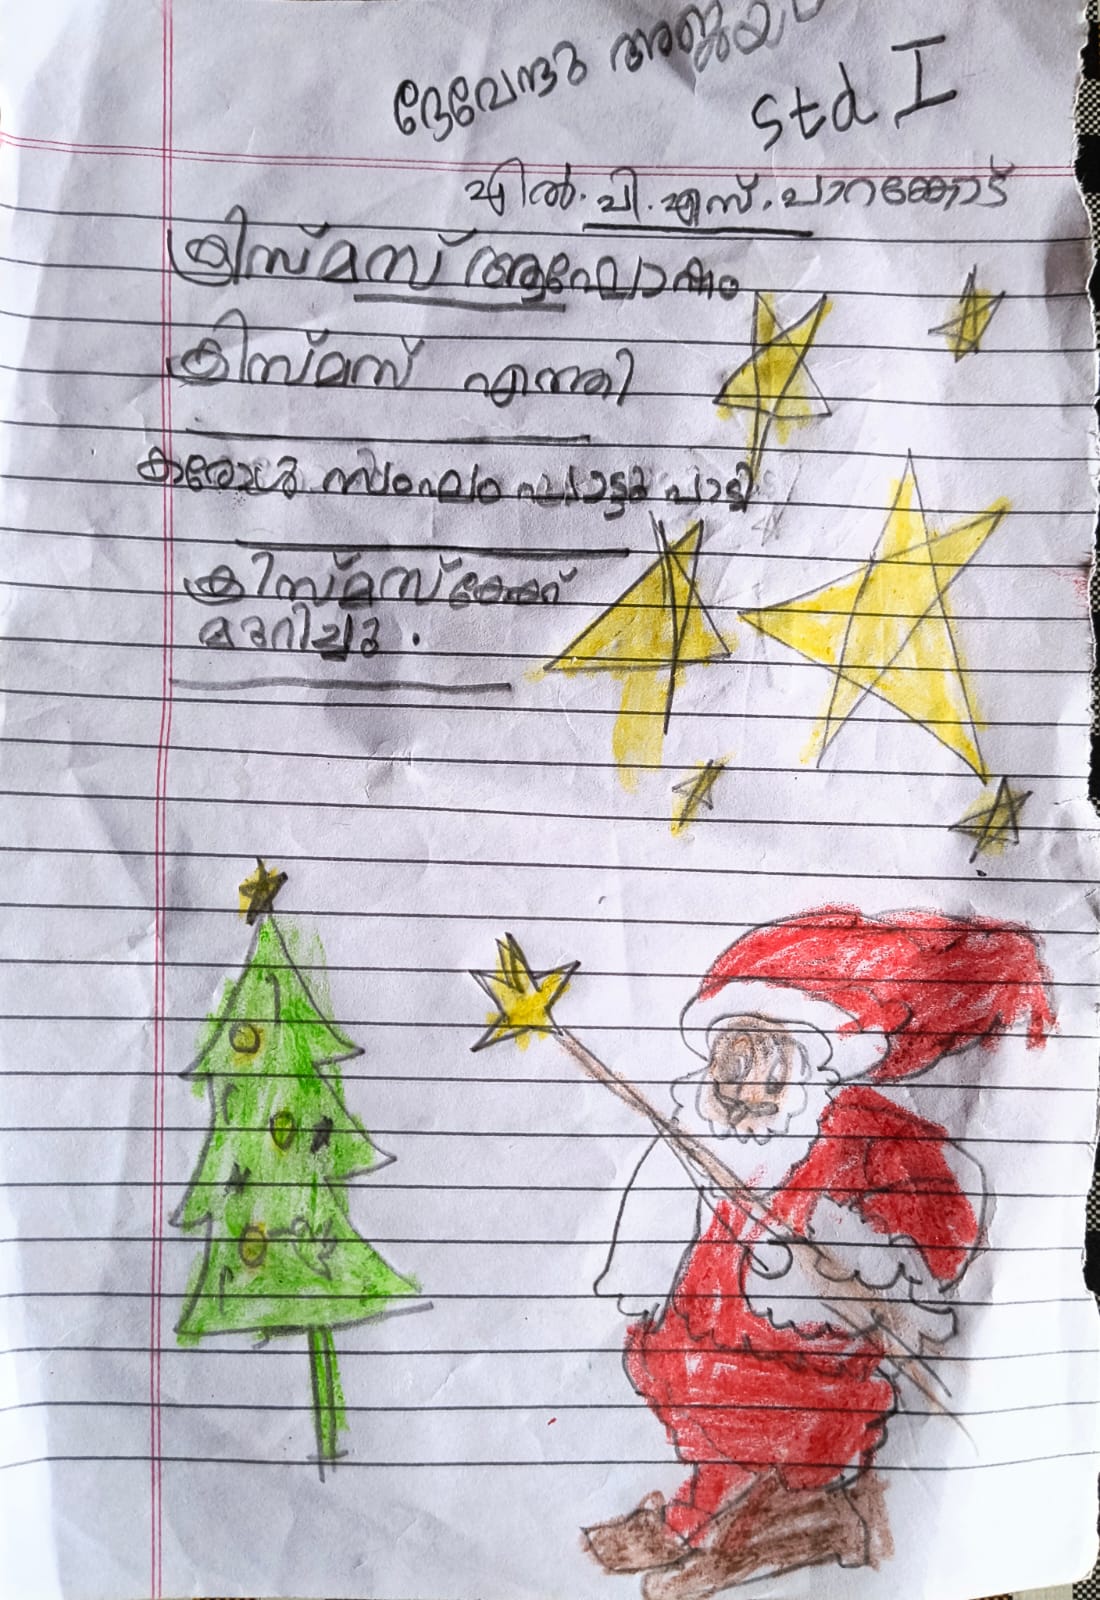 ദേവേന്ദു അജയ്
Std I
എൽ.പി.എസ്.പാറക്കോട്
ക്രിസ്മസ് ആഘോഷം
ക്രിസ്മസ് എത്തി
കരോൾ സംഘം പാട്ടു പാടി
ക്രിസ്മസ് കേക്ക്
മുറിച്ചു.